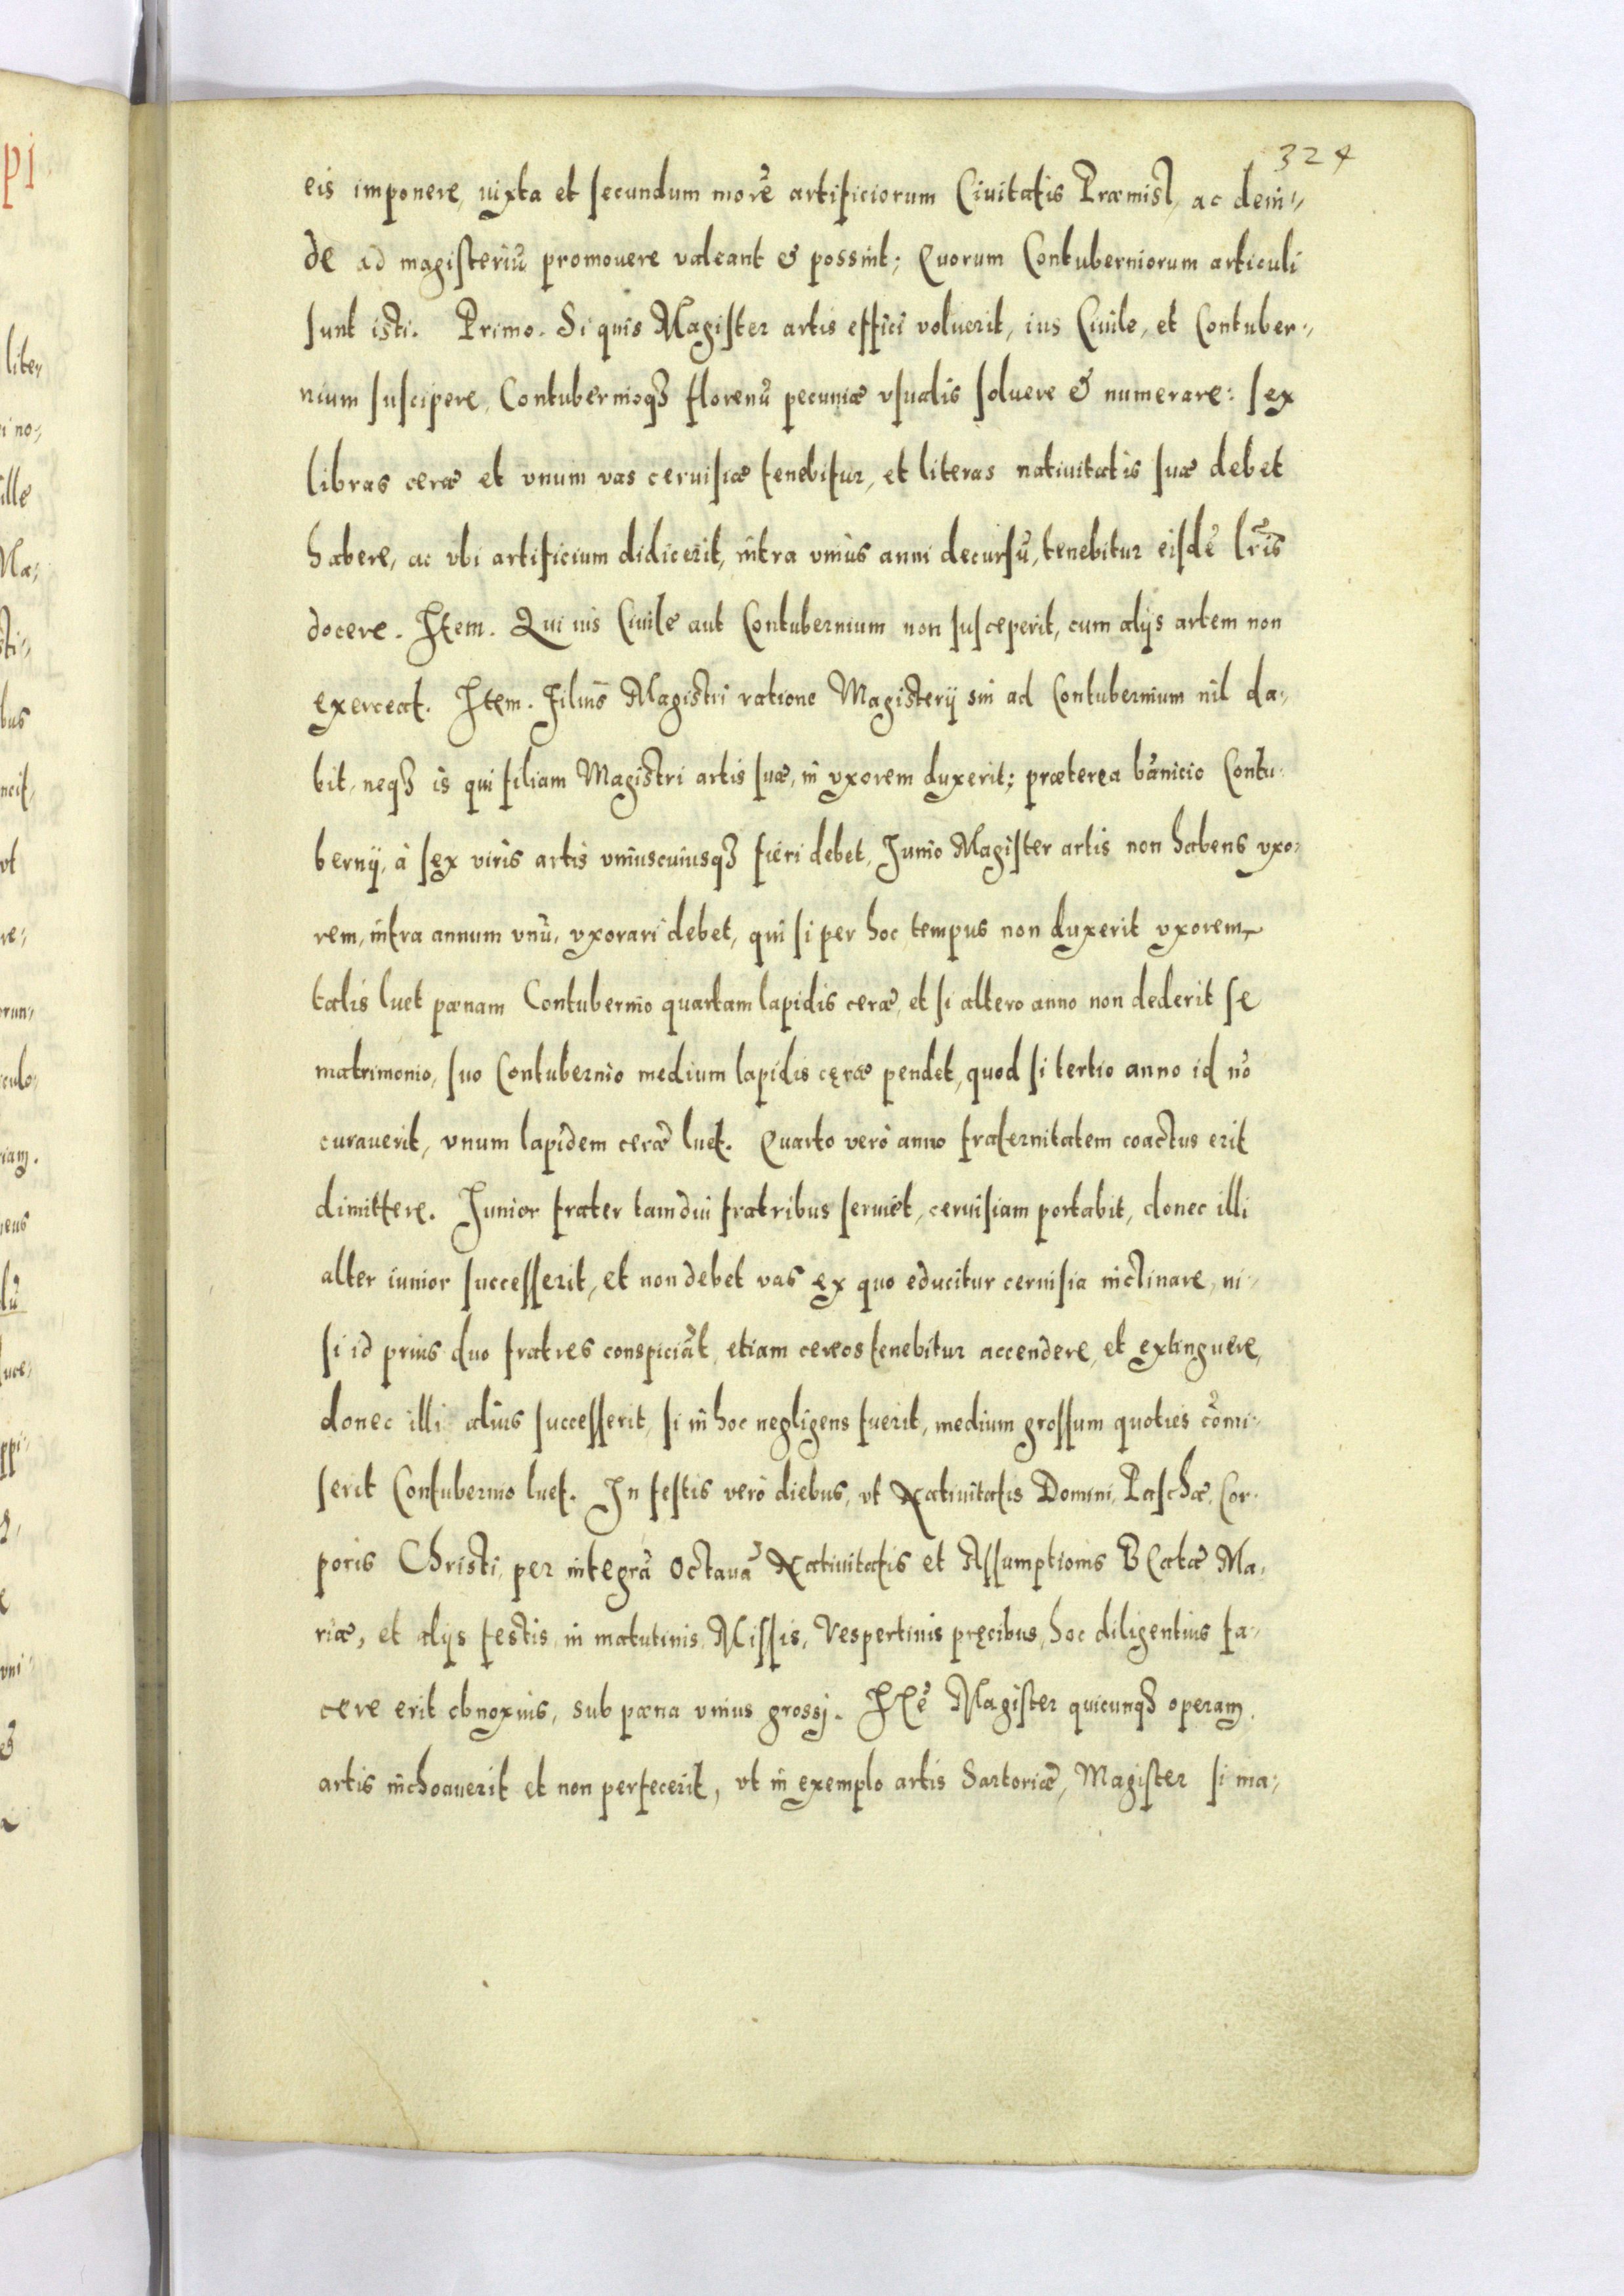 324
eis imponere, iuxta et secundum morē artificiorum Ciuitatis Præmisl, ac dein⸗
de ad magisteriū promouere valeant & possint; Quorum Contuberniorum articuli
sunt isti. Primo. Si quis Magister artis effici voluerit, ius Ciuile, et Contuber⸗
nium suscipere, Contubernioqꝫ florenū pecuniæ vsualis soluere & numerare: sex
libras ceræ et vnum vas ceruisiæ tenebitur, et literas natiuitatis suæ debet
habere, ac vbi artificium didicerit, intra vnius anni decursū, tenebitur eisdē lr̃is
docere. Item. Qui ius Ciuile aut Contubernium non susceperit, cum alijs artem non
exerceat. Item. Filius Magistri ratione Magisterij sui ad Contubernium nil da⸗
bit, neqꝫ is qui filiam Magistri artis suæ, in vxorem duxerit; præterea bānicio Contu⸗
bernij, à sex viris artis vniuscuiusqꝫ fieri debet, Iunio Magister artis non habens vxo⸗
rem, intra annum vnū, vxorari debet, qui si per hoc tempus non duxerit vxorem,
talis luet pœnam Contubernio quartam lapidis ceræ, et si altero anno non dederit se
matrimonio, suo Contubernio medium lapidis cęræ pendet, quod si tertio anno id nō
curauerit, vnum lapidem ceræ luet. Quarto verò anno fraternitatem coactus erit
dimittere. Junior frater tamdiu fratribus seruiet, ceruisiam portabit, donec illi
alter iunior successerit, et non debet vas ex quo educitur ceruisia inclinare, ni⸗
si id prius duo fratres conspiciāt, etiam cereos tenebitur accendere, et extinguere,
donec illi alius successerit, si in hoc negligens fuerit, medium grossum quoties cōmi⸗
serit Contubernio luet. In festis verò diebus, vt Natiuitatis Domini, Paschæ, Cor⸗
poris Christi, per integrā Octauā Natiuitatis et Assumptionis Beatæ Ma⸗
riæ, et alijs festis, in matutinis, Missis, Vespertinis pręcibus, hoc diligentius fa⸗
cere erit obnoxius, sub pœna vnius grossj. Itē Magister quicunqꝫ operam
artis inchoauerit et non perfecerit, vt in exemplo artis Sartoriæ, Magister si ma⸗